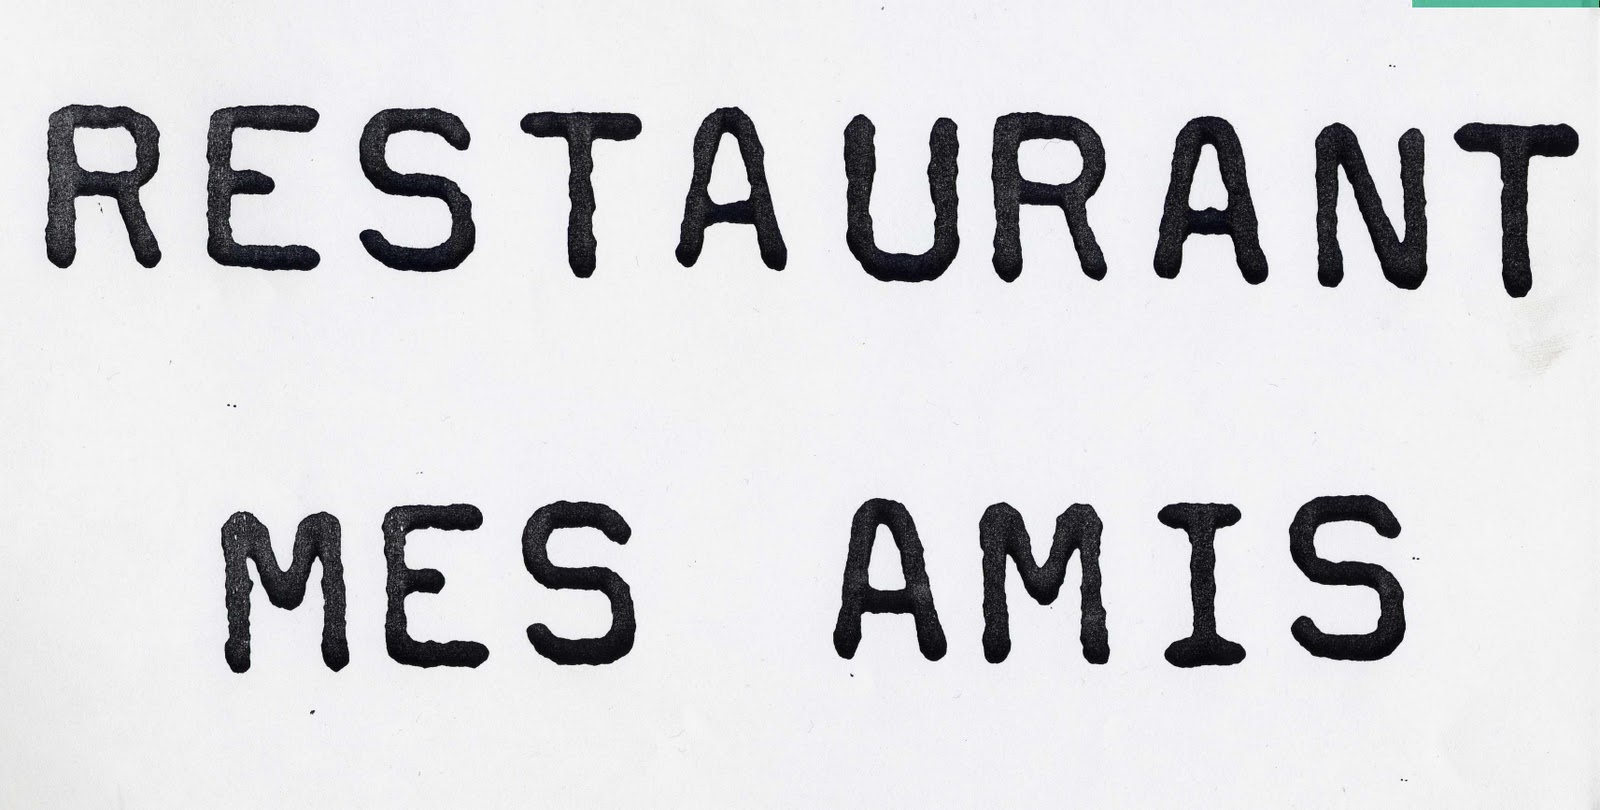 RESTAURANT
MES AMIS